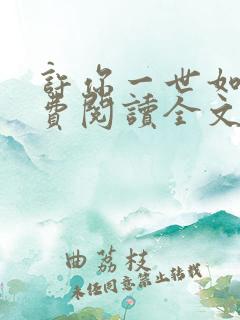 許你一世如
費閱讀全文
曲荔枝
未经同意禁止转载